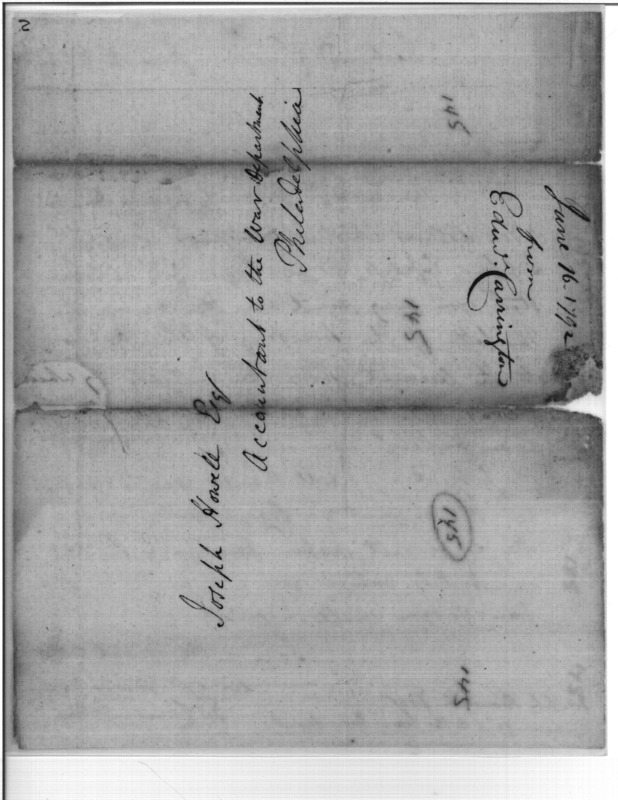 2
Joseph Howell Esqr
Accountant to the War Department
Philadelphia
June 16. 1792
from
Edwd. Carrington
145
145
145
145